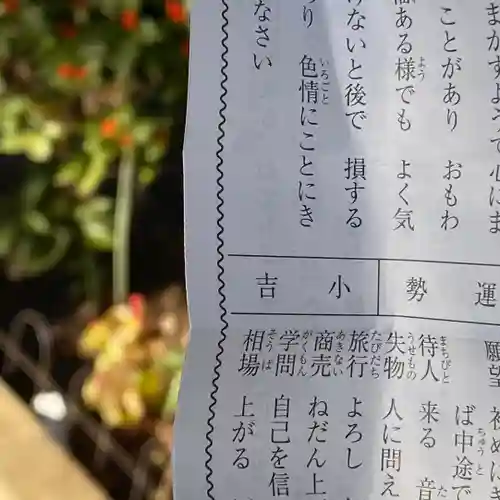 まかすようで心にま
ことがあり おもわ
ある様でも よく気
けないと後で 損する
り 色情にことにき
なさい
運勢
小吉
願望
ば中途で
待人 来る 音
失物 人に問え
旅行 よろし
商売 ねだん上
学問 自己を信
相場 上がる